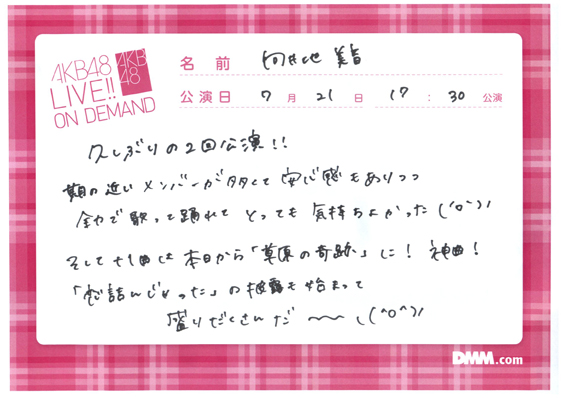 AKB48
LIVE!!
ON DEMAND
AKB
48
名前 向井地 美音
公演日 7月21日 17:30公演
久しぶりの2回公演!!
期の近いメンバーが多くて安心感もありつつ
全力で歌って踊れてとっても気持ちよかった(^o^)!
そして+1曲は本日から「草原の奇跡」に!神曲!
の披露も始まって
盛りだくさんだ〜〜\(^o^)/
DMM.com